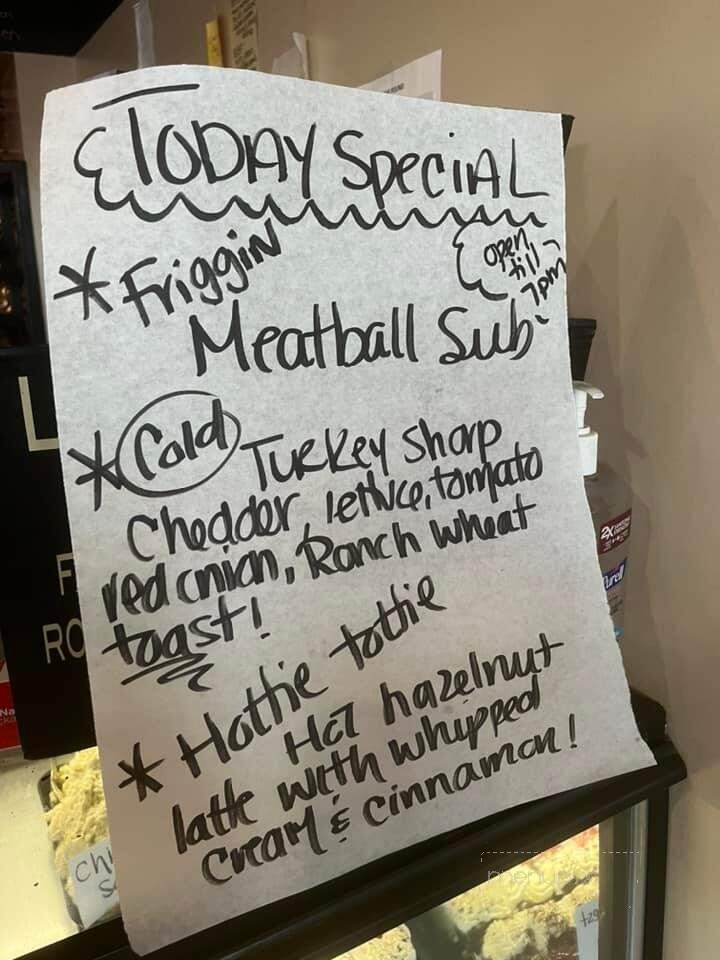 TODAY SpeciAL
* Friggin
open
till
7pm
Meatball Sub
* Cold Turkey sharp
Chedder, lettuce, tomato
red onion, Ranch wheat
toast!
* Hottie tottie
Hot hazelnut
latte with whipped
cream & cinnamon!
2X
Purell
L
F
RO
Na
Ch
S
menu